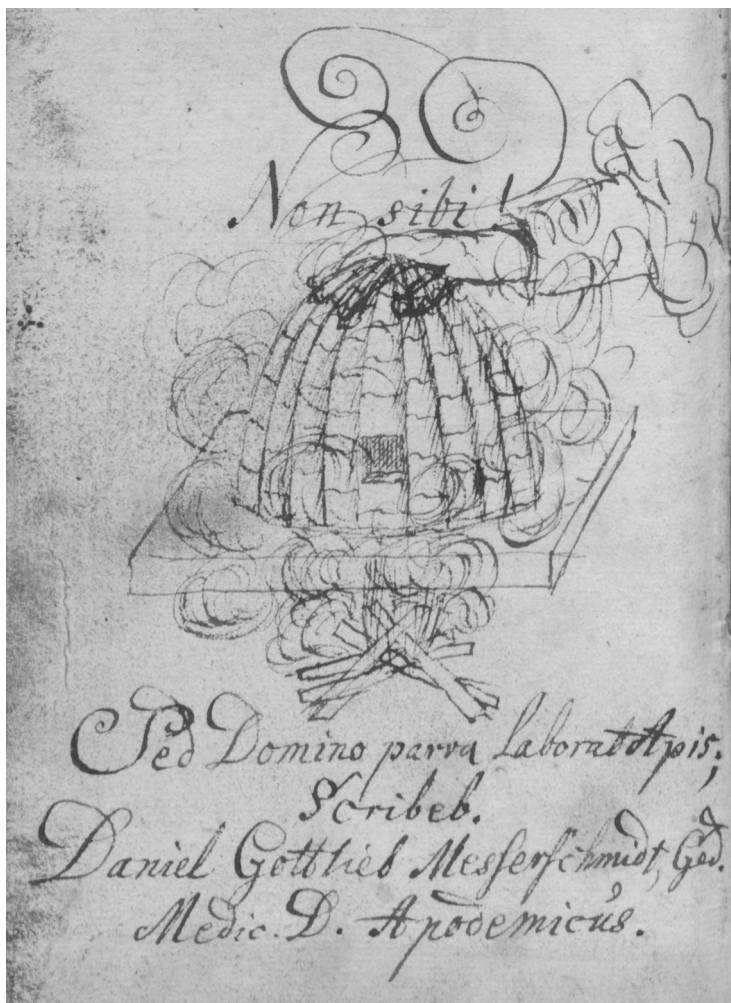 Non sibi!
Sed Domino parva laborat Apis;
Scribeb.
Daniel Gottlieb Messerschmidt, Ged.
Medic. D. Apodemicus.